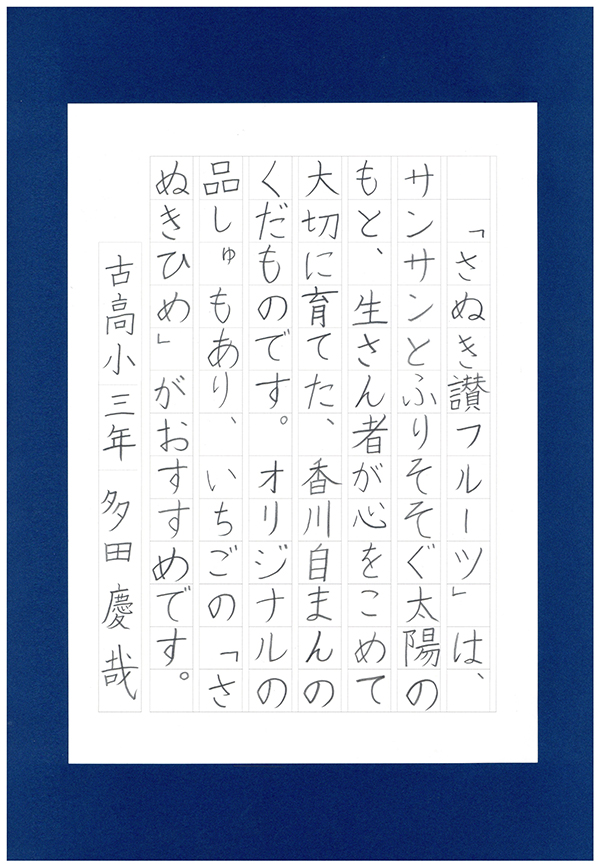 「さぬき讃フルーツ」は、
サンサンとふりそそぐ太陽の
もと、生さん者が心をこめて
大切に育てた、香川自まんの
くだものです。オリジナルの
品しゅもあり、いちごの「さ
ぬきひめ」がおすすめです。
古高小三年 多田慶哉